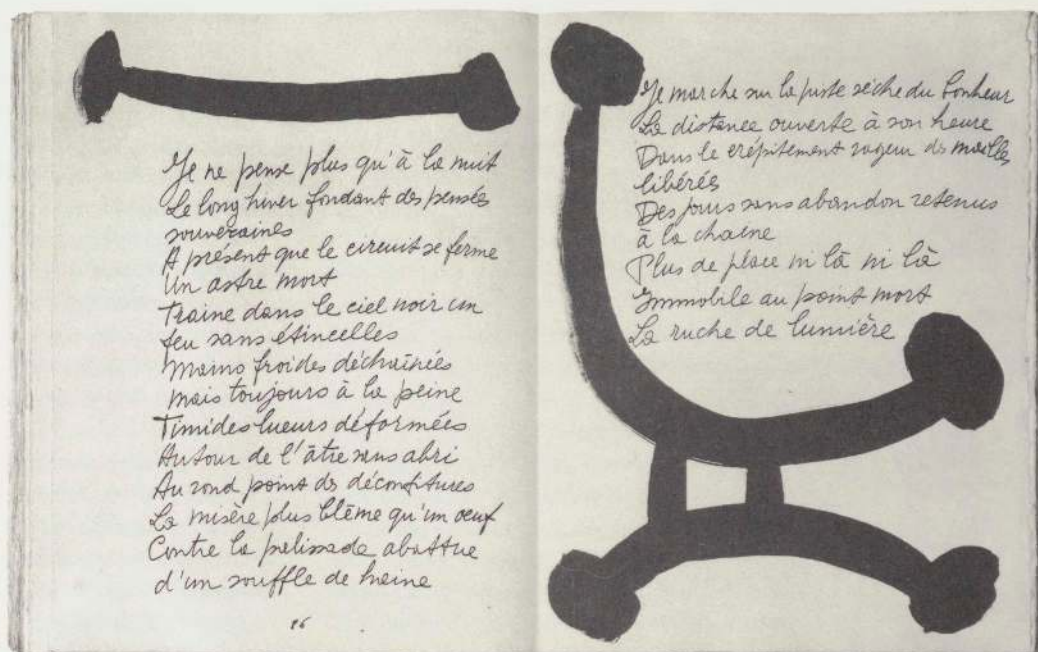 Je ne pense plus qu'à la nuit
Le long hiver fondant des pensés
souveraines
A présent que le circuit se ferme
Un astre mort
Traine dans le ciel noir un
feu sans étincelles
Mains froides déchaînées
mais toujours à la peine
Timides lueurs déformées
Autour de l'âtre sans abri
Au rond point des déconfitures
La misère plus blême qu'un oeuf
Contre la palissade abattue
d'un souffle de haine
86
Je marche sur la piste sèche du bonheur
La distance ouverte à son heure
Dans le crépitement rageur des mailles
libérés
Des jours sans abandon retenus
à la chaine
Plus de place ni là ni là
Immobile au point mort
La ruche de lumière